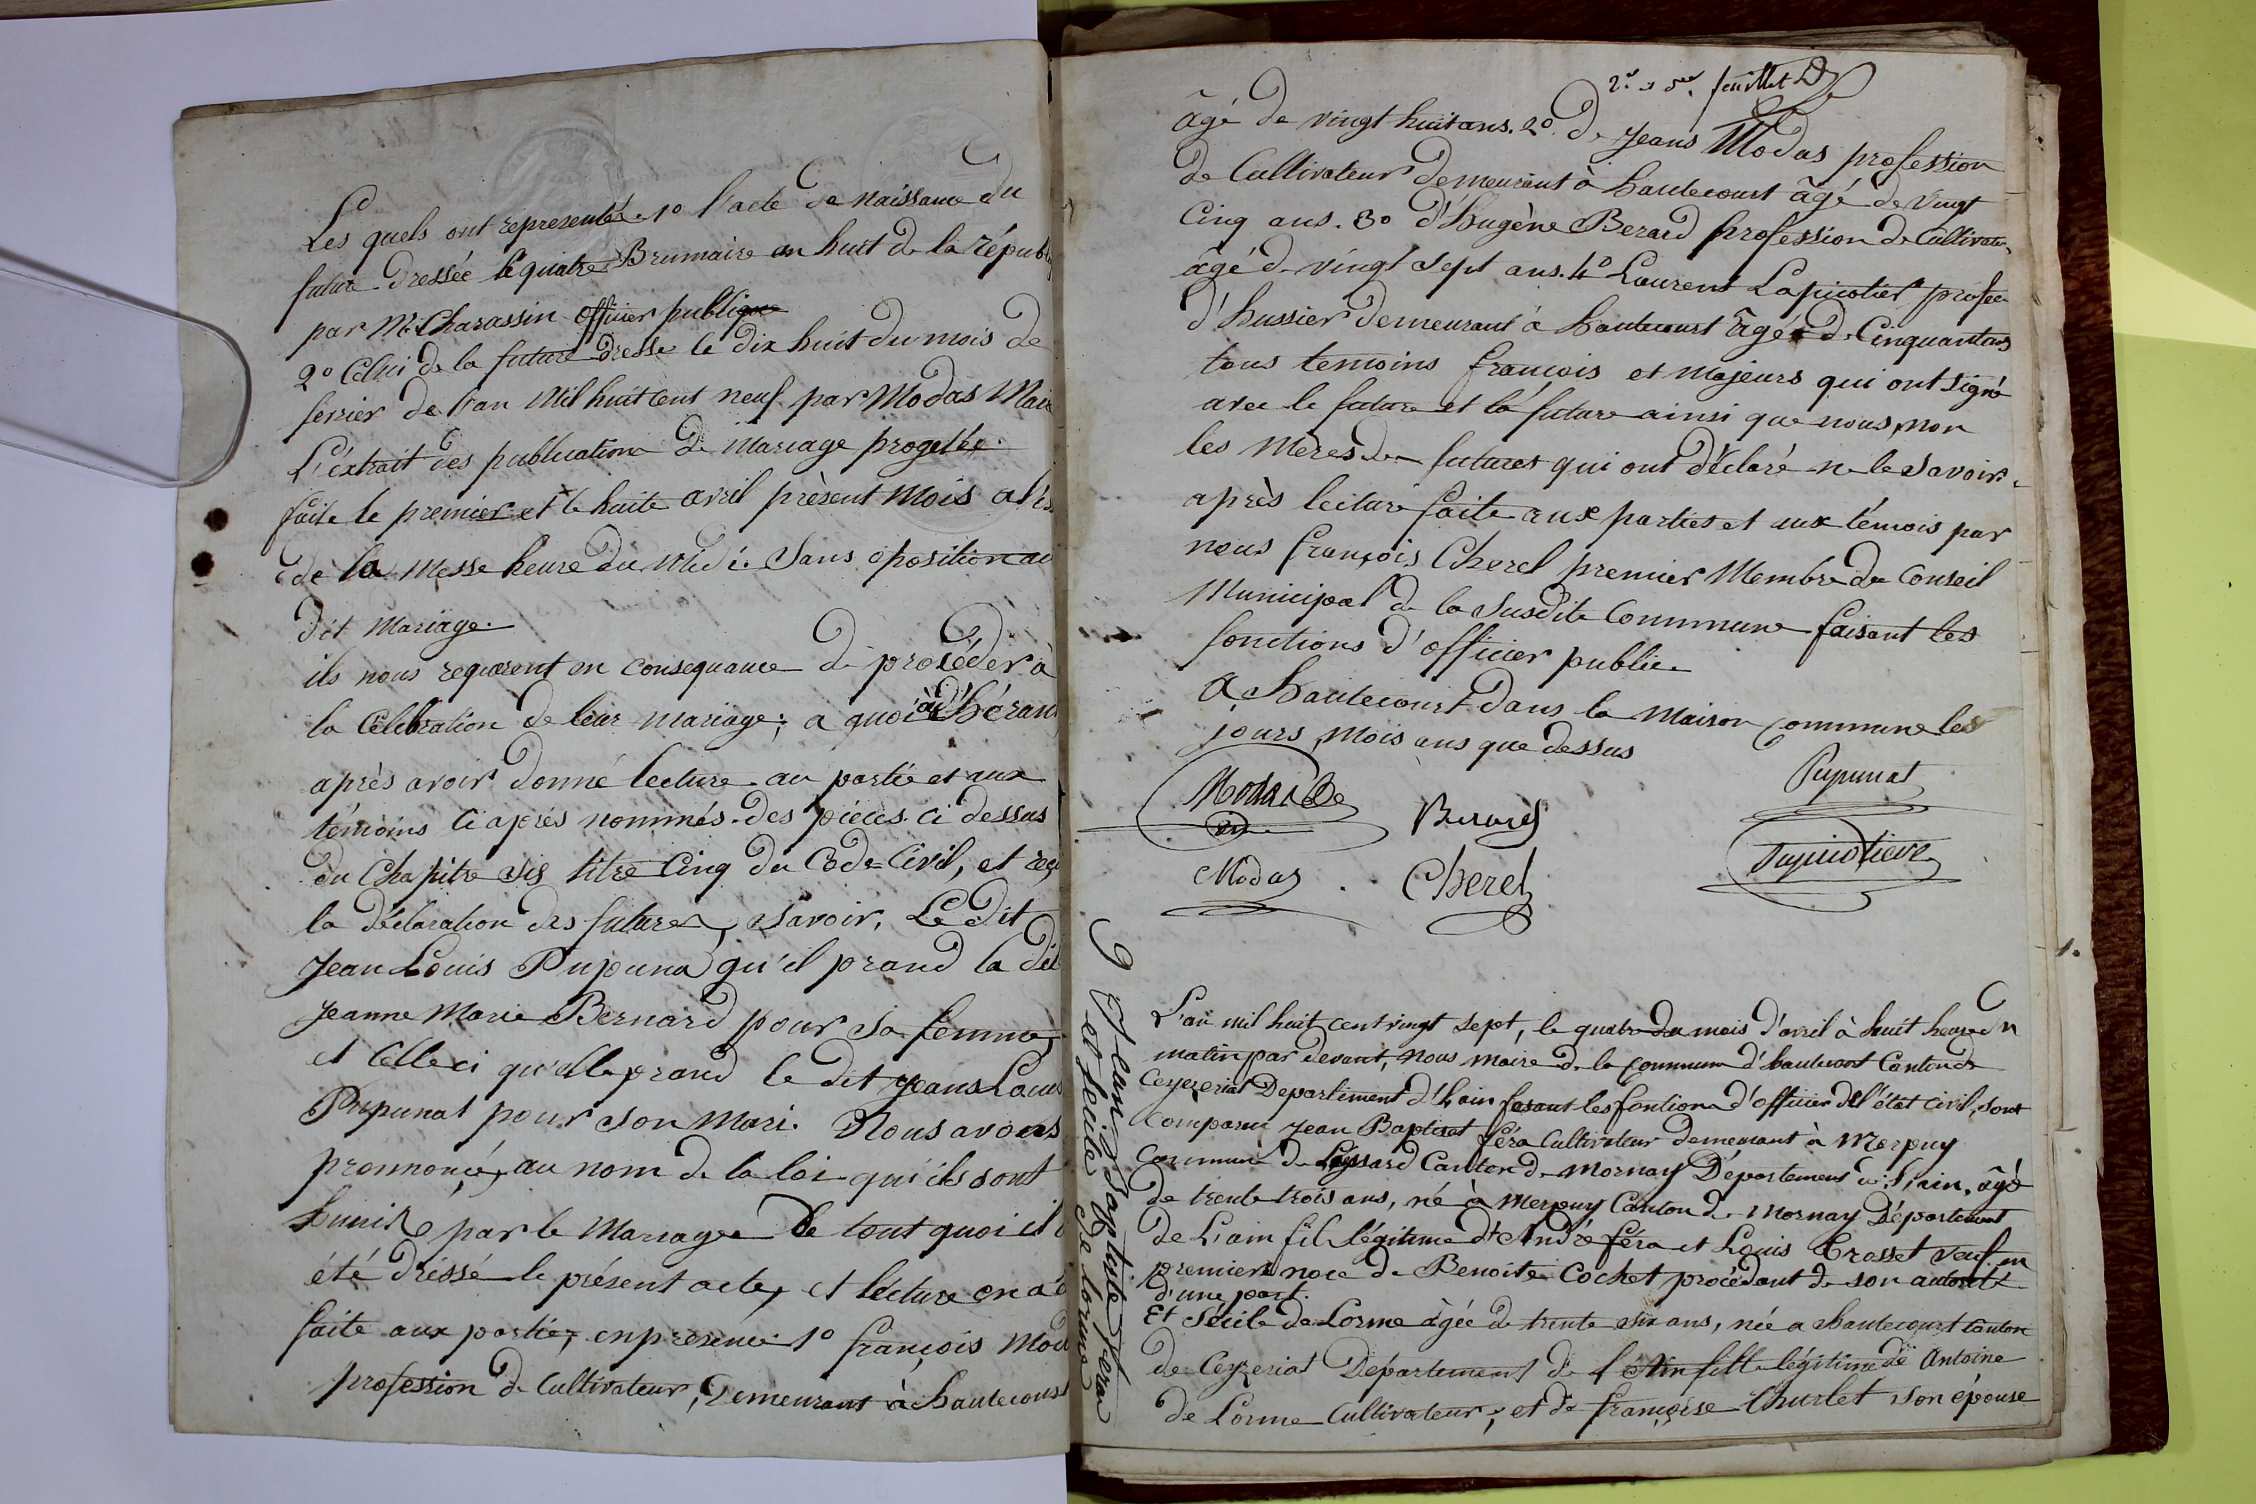 Les quels ont representé. 1o l'acte de naissance du
futur dressée le quatre Brumaire an huit de la répub
par Mr Charassin officier publique
2o Celui de la future dresse le dix huit du mois de
ferrier de l'an Mil huit cent neuf par Modas Mair
L'éxtrait des publication de Mariage progetée.
faite le premier et le huite avril présent Mois a l'is
de la Messe heure du Midi. Sans oposition au
dit Mariage.
ils nous requerent en consequance de procéder à
la Célébration de leur mariage; a quoi adhéran
après avoir donné lecture au partie et aux
témoins ci après nommés des pièces ci dessus
du Chapitre sis titre Cinq du Code Civil, et reçu
la déclaration des futures, savoir, Le dit
Jean Louis Pupuna qu'il prand la dit
Jeanne Marie Bernard pour sa femme,
et Celle ci qu'elle prand le dit Jeans Loui
Pupunat pour son Mari. Nous avons
pronnonçé, au nom de la loi qu'ils sont
hunis par le Mariage De tout quoi il a
été dressé le présent acte, et lecture en a é
faite aux partie, en presence 1o françois Mod
profession de Cultivateur, demeurant à hautecourt
2e et 5me feuillet
âgé de vingt huit ans. 2o. de Jeans Modas profession
de Cultivateur demeurant à hautecourt âgé de vingt
Cinq ans. 3o d'hugène Berard profession de Cultivateur
âgé de vingt sept ans. 4o Laurent Lapicotier profes
d'hussier demeurant à hautecourt âgé de Cinquantans
tous temoins francois et majeurs qui ont signé
avec le future et la future ainsi que nous, non
les Meres des futures qui ont déclaré ne le savoir.
après lecture faite aux parties et aux témois par
nous françois Cherel premier Membre du Conseil
Municipal de la Susdite Commune faisant les
fonctions d'officier public.
a hautecourt dans la Maison Commune les
jours, mois ans que dessus
Modas
Pupunat
Berard
Modas
Cherel
Jean Baptiste feraz
et secile De lorme
L'an mil huit cent vingt sept, le quatre du mois d'avril à huit heure du
matin par devant, nous maire de la commune d'hautecourt Canton de
Ceyzeriat Departement d'hain fesant les fontion d'officier de l'état civil, sont
Comparu Jean Baptiset féra Cultivateur demeurant à Merpuy
Commune de Leyssard Canton de Mornay Département de l'hain, âgé
de trente trois ans, né à Merpuy Canton de Mornay Département
de L'ain fil légitime d'André féra et Louis Crosset veuf en
premiere noce de Benoite Cochet procédant de son autorité
d'une part.
Et Sécile de Lorme âgée de trente six ans, née a hautecourt Canton
de Ceyzeriat Département de l'Ain fille légitime de Antoine
de Lorme Cultivateur, et de françoise Churlet son épouse